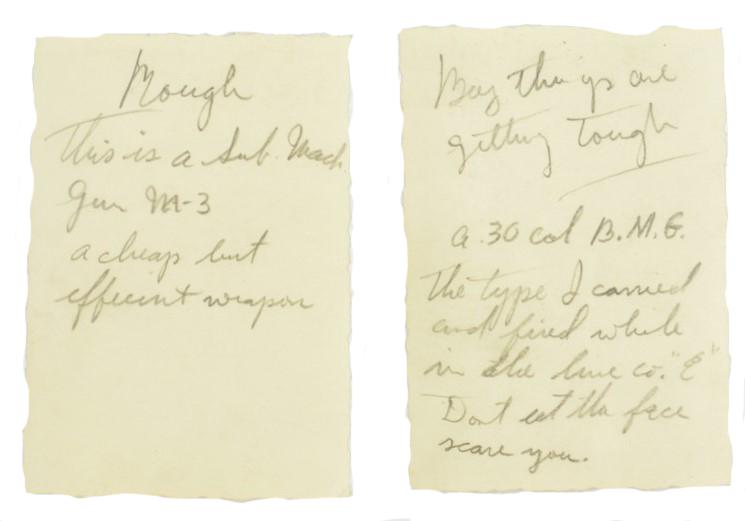 Rough
This is a Sub. Mach
Gun M-3
a cheap but
efficient weapon
Boy things are
getting tough
a .30 cal B.M.G.
The type I carried
and fired while
in the line co. "E"
Dont let the face
scare you.